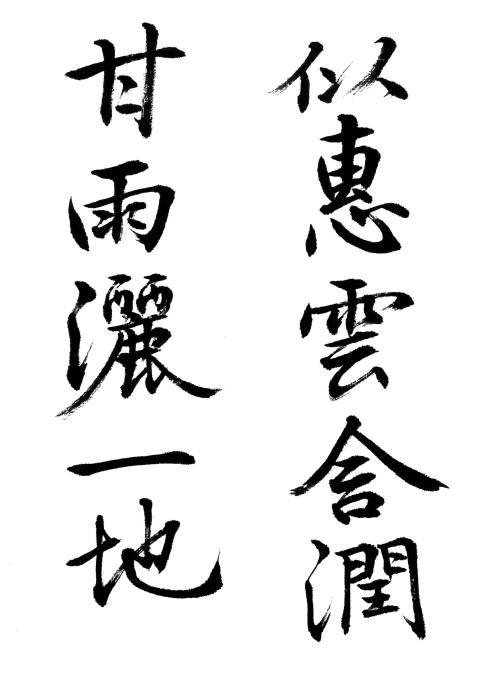 似惠雲含潤
甘雨灑一地